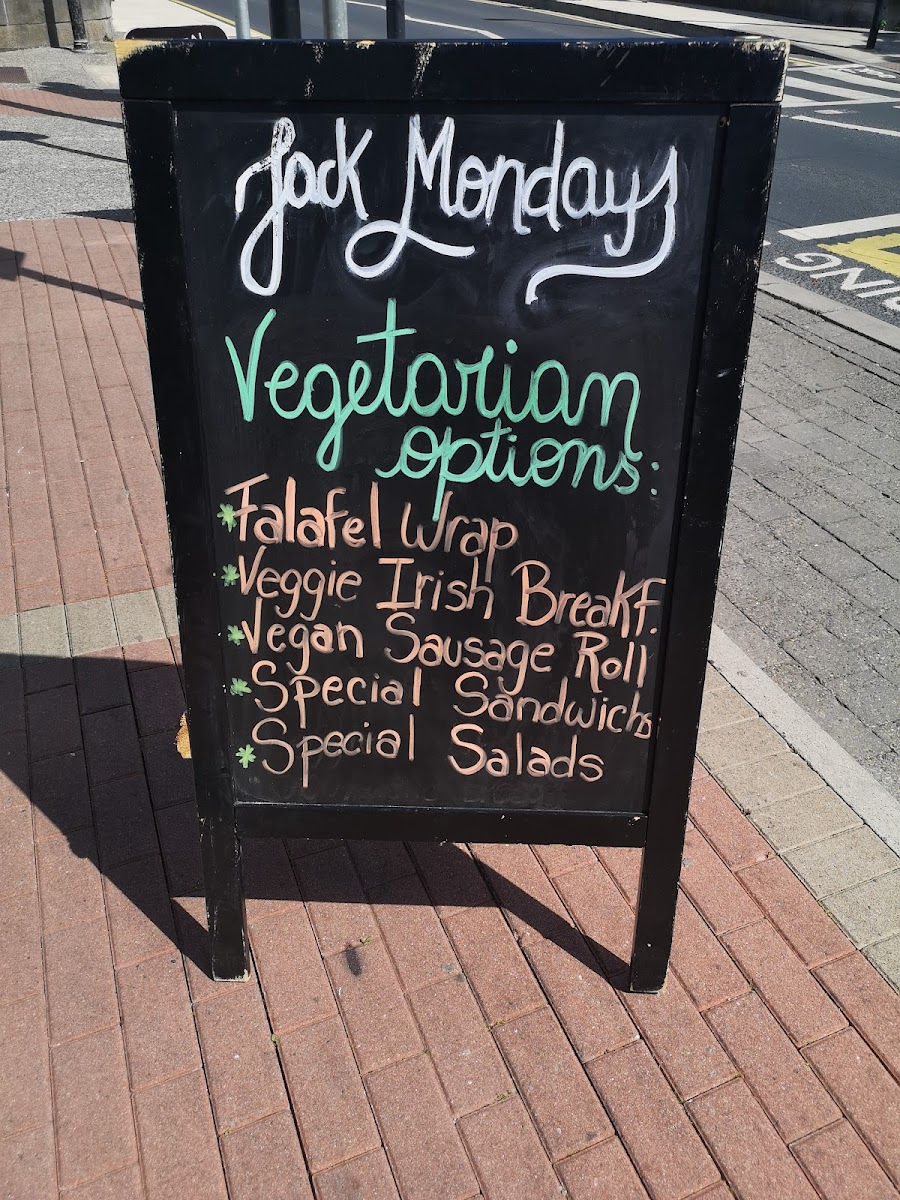 Jack Mondays
Vegetarian
options:
Falafel Wrap
Veggie Irish Breakf.
Vegan Sausage Roll
Special Sandwichs
Special Salads